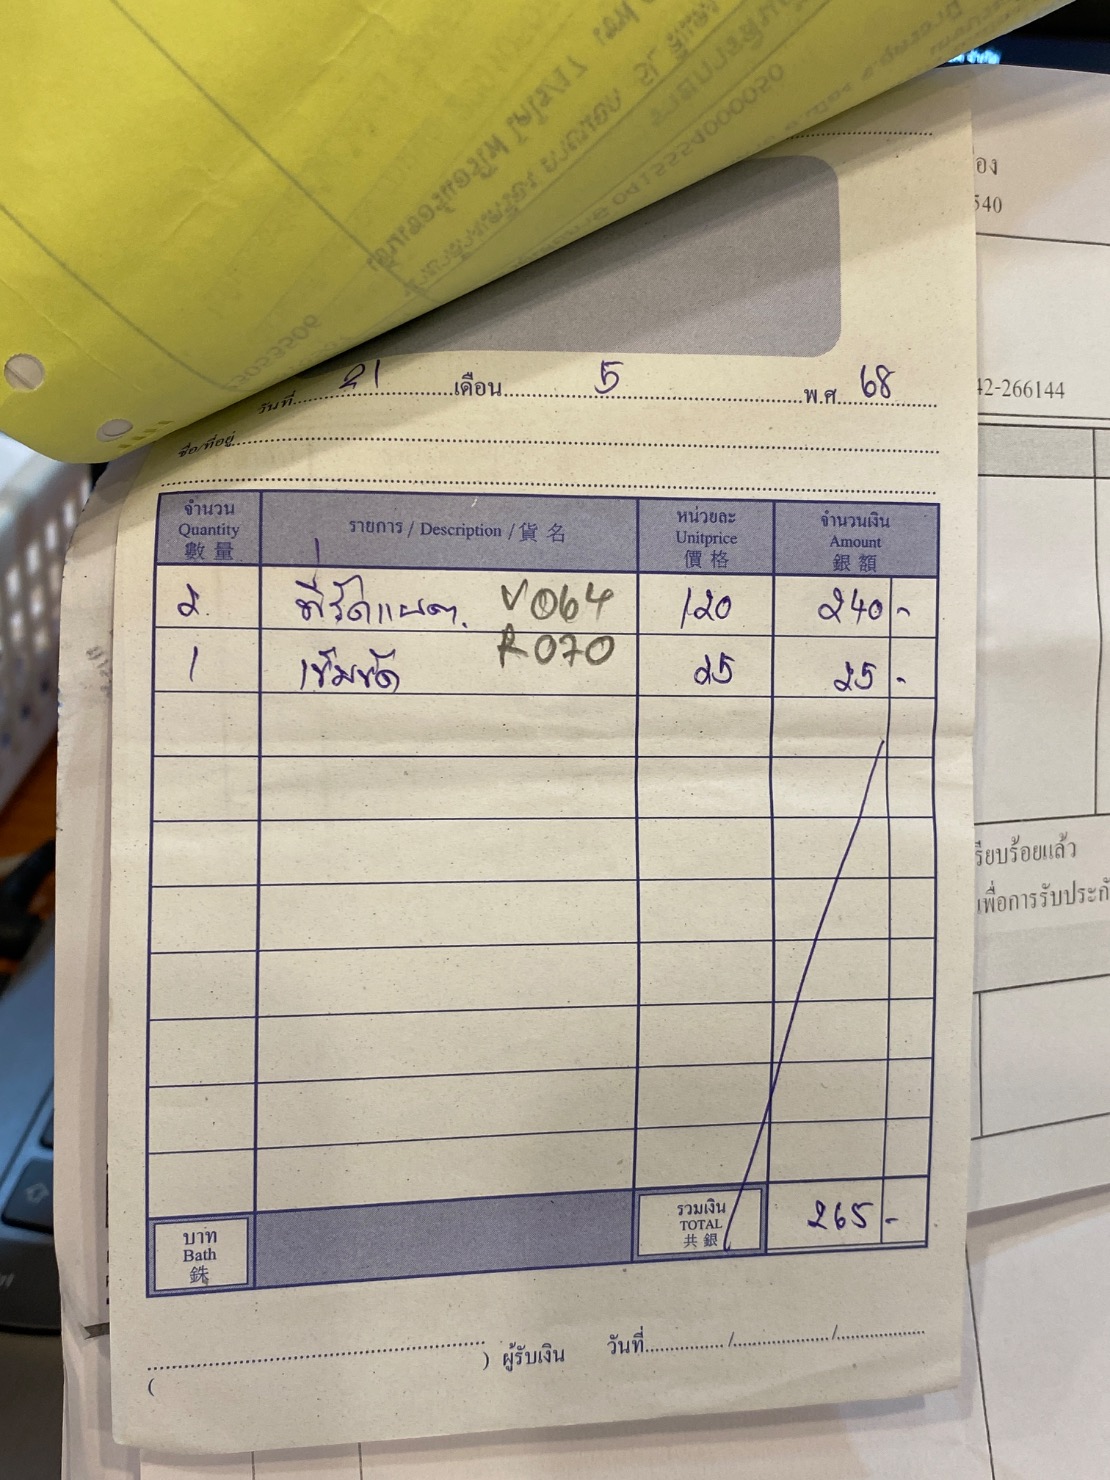 อง
540
42-266144
วันที่ 21 เดือน 5 พ.ศ. 68
ชื่อ/ที่อยู่
จำนวน Quantity 數量 รายการ / Description / 貨名 หน่วยละ Unitprice 價格 จำนวนเงิน Amount 銀額
2. V064 120 240 -
1 เข็มขัด R070 25 25 -
รียบร้อยแล้ว
เพื่อการรับประกั
บาท Bath 銖 รวมเงิน TOTAL 共銀 265 -
( ) ผู้รับเงิน วันที่ / /